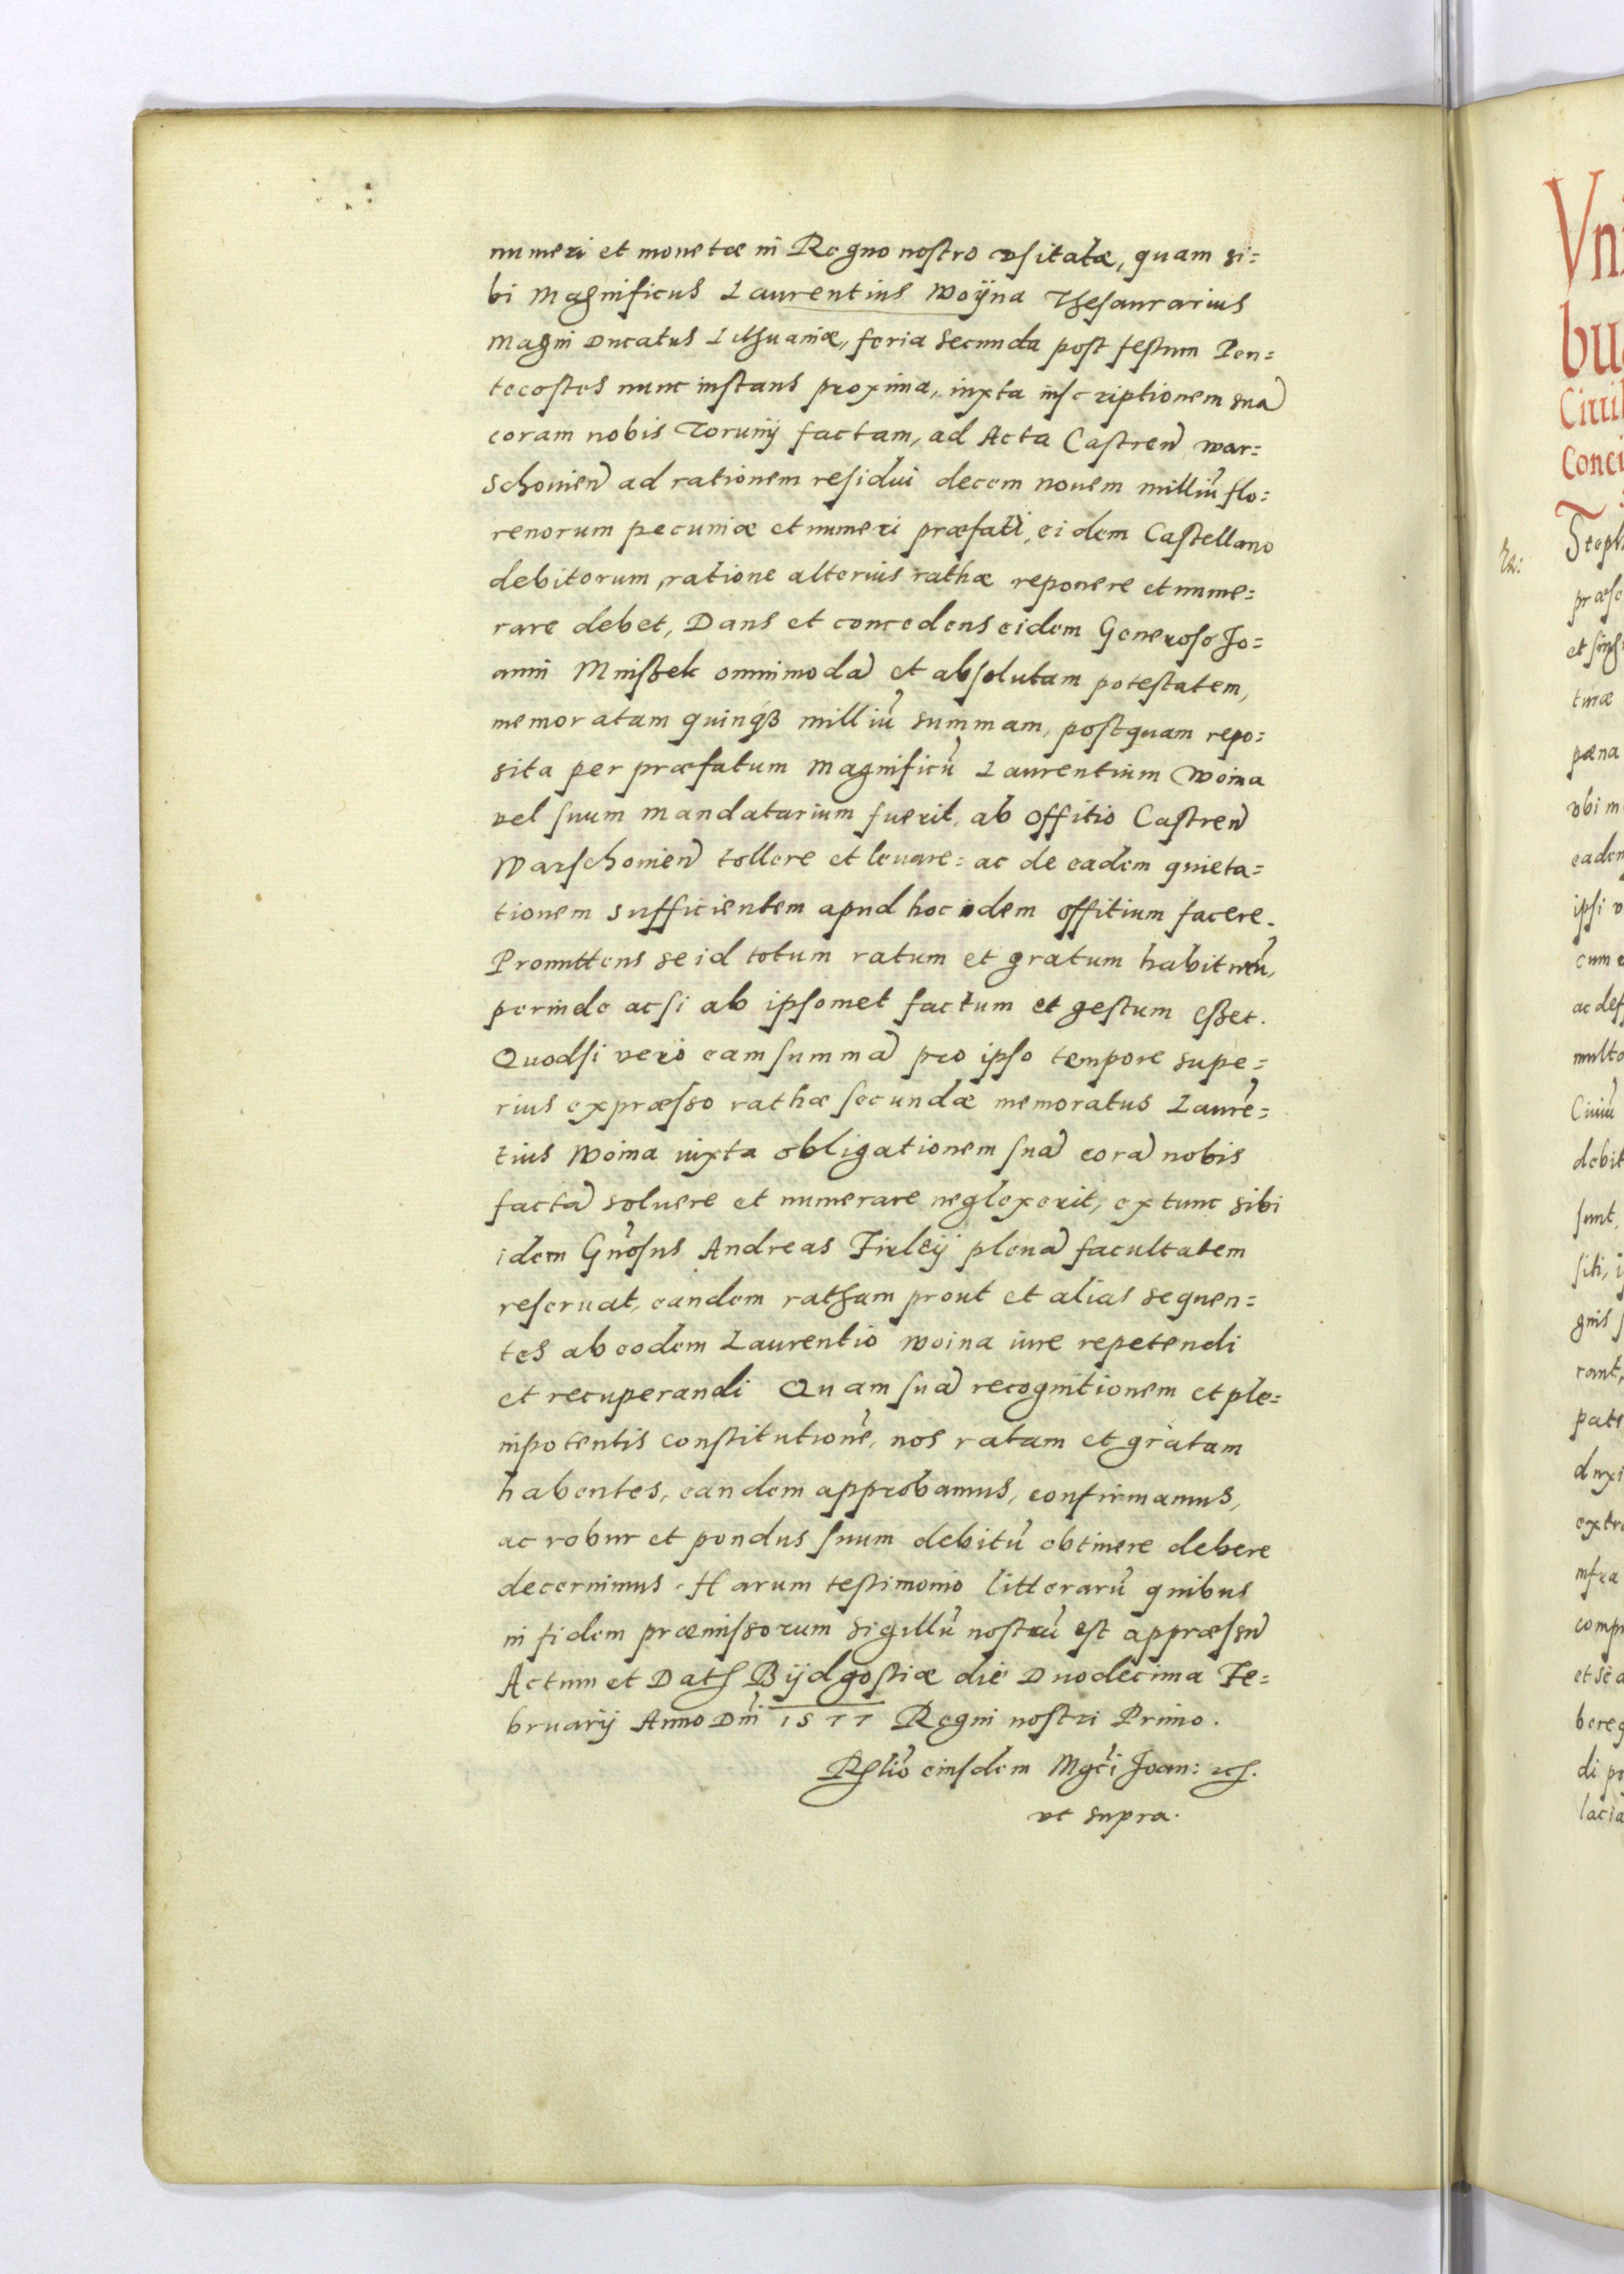 numeri et monetæ in Regno nostro vsitatæ, quam si=
bi Magnificus Laurentius Woÿna Thesaurarius
Magni Ducatus Lithuaniæ, feria secunda post festum Pen=
tecostes nunc instans proxima, iuxta inscriptionem suã
coram nobis Torunij factam, ad Acta Castreñ War=
schouieñ ad rationem residui decem nouem milliũ flo=
renorum pecuniæ et numeri præfati, eidem Castellano
debitorum, ratione alterius rathæ reponere et nume=
rare debet, Dans et concedens eidem Generoso Jo=
anni Mniszek omnimodã et absolutam potestatem,
memoratam quinqꝫ milliũ summam, postquam repo=
sita per præfatum Magnificũ Laurentium Woina
vel suum mandatarium fuerit, ab Offitio Castreñ
Warschouieñ tollere et leuare= ac de eadem quieta=
tionem sufficientem apud hoc idem offitium facere.
Promittens se id totum ratum et gratum habiturũ,
perinde acsi ab ipsomet factum et gestum esset.
Quodsi vero eam summã pro ipso tempore supe=
rius expræsso rathæ secundæ memoratus Laurẽ=
tius Woina iuxta obligationem suã corã nobis
factã soluere et numerare neglexerit, extunc sibi
idem Gñosus Andreas Firleÿ plenã facultatem
reseruat, eandem ratham prout et alias sequen=
tes ab eodem Laurentio Woina iure repetendi
et recuperandi Quam suã recognitionem et ple=
nipotentis constitutionẽ, nos ratam et gratam
habentes, eandem approbamus, confirmamus,
ac robur et pondus suum debitũ obtinere debere
decernimus. Harum testimonio litterarũ quibus
in fidem præmissorum sigillũ nostrũ est appræssũ
Actum et Dat Bÿdgostiæ die Duodecima Fe=
bruarij Anno Dñi 1577 Regni nostri Primo.
Rlio eiusdem Mgci Joan: etc.
vt supra.
Vni
bu
Ciuil
Conci
Steph
præse
et sing
tinæ
pæna
vbi m
eadem
ipsi v
cum e
ac def
multo
Ciuiũ
debit
sunt,
siti, i
gnis
rant,
pate
duxi
extra
infra
comp
et se a
bereg
di po
lacia